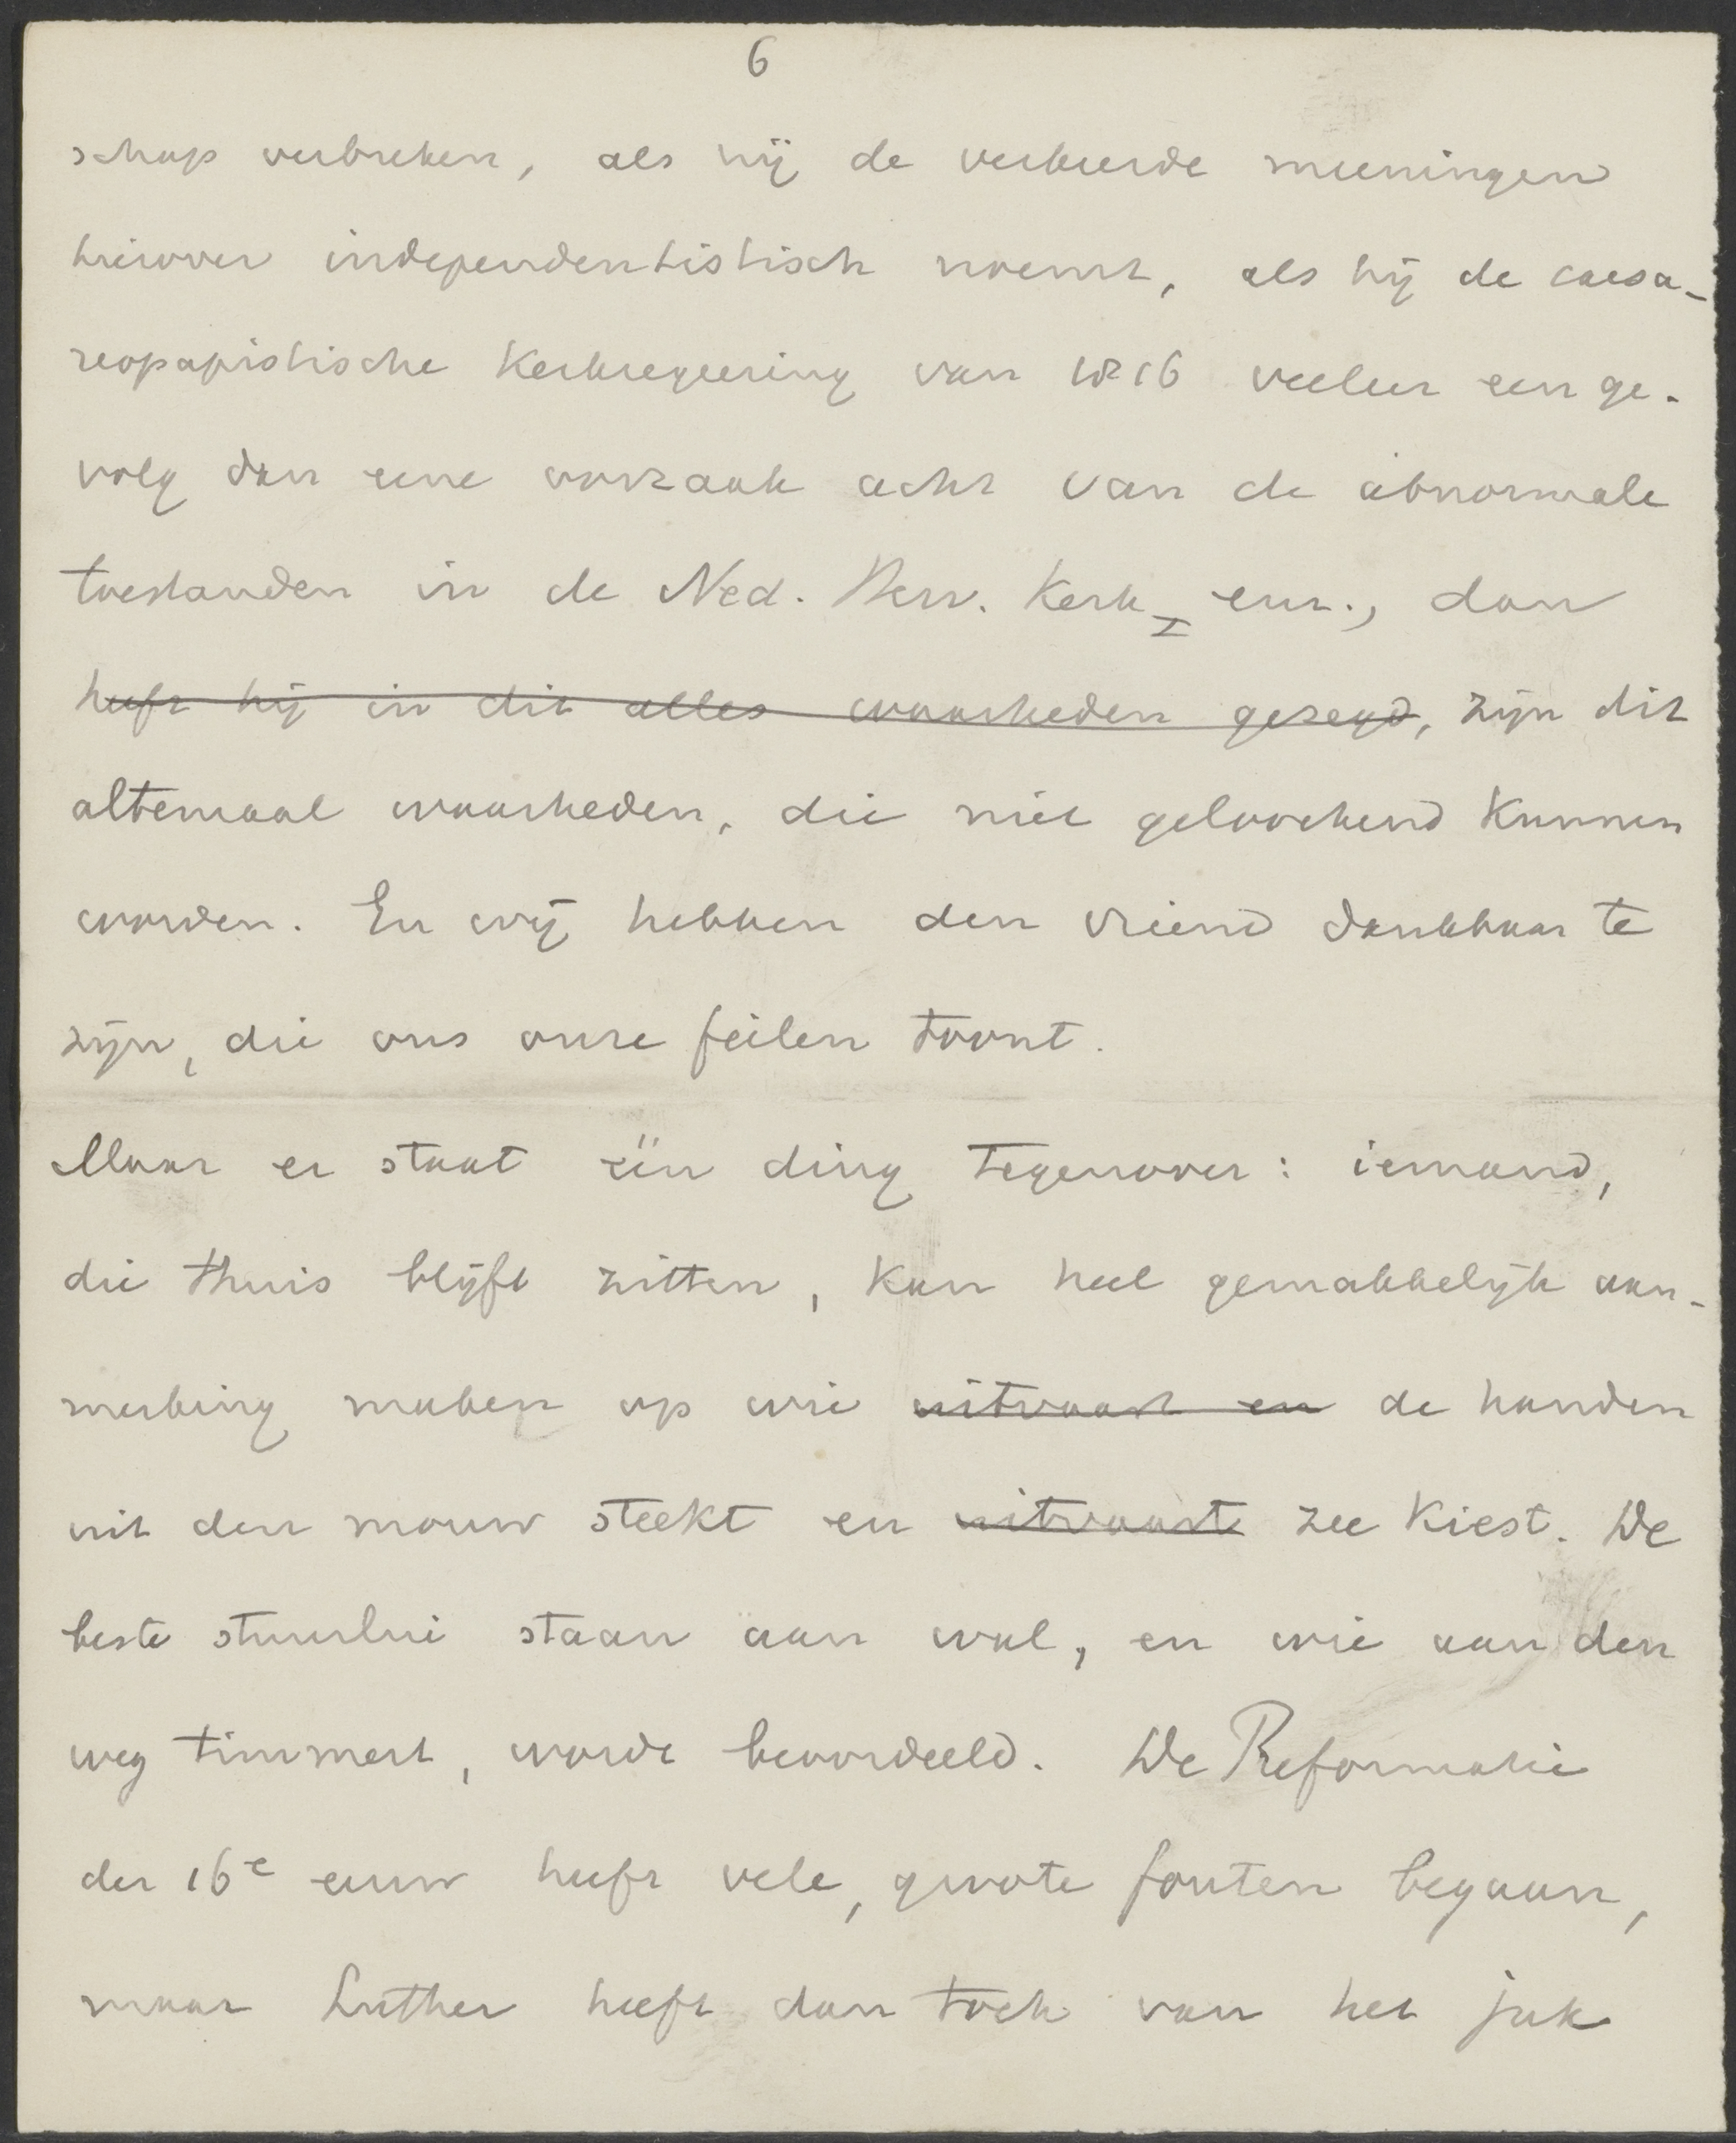 6
schap verbreken, als hij de verkeerde meeningen
hierover independentistisch noemt, als hij de caesa-
reopapistische Kerkregeering van 1816 veeleer een ge-
volg dan eene oorzaak acht van de abnormale
toestanden in de Ned. Herv. Kerk I enz., dan
heeft hij in dit alles waarheden gezegd, zijn dit
altemaal waarheden, die niet geloochend kunnen
worden. En wij hebben den vriend dankbaar te
zijn, die ons onze feilen toont.
Maar er staat één ding tegenover: iemand,
die thuis blijft zitten, kan heel gemakkelijk aan-
merking maken op wie uitvaart en de handen
uit den mouw steekt en uitvaart zee kiest. De
beste stuurlui staan aan wal, en wie aan den
weg timmert, wordt beoordeeld. De Reformatie
der 16e eeuw heeft vele, groote fouten begaan,
maar Luther heeft dan toch van het juk